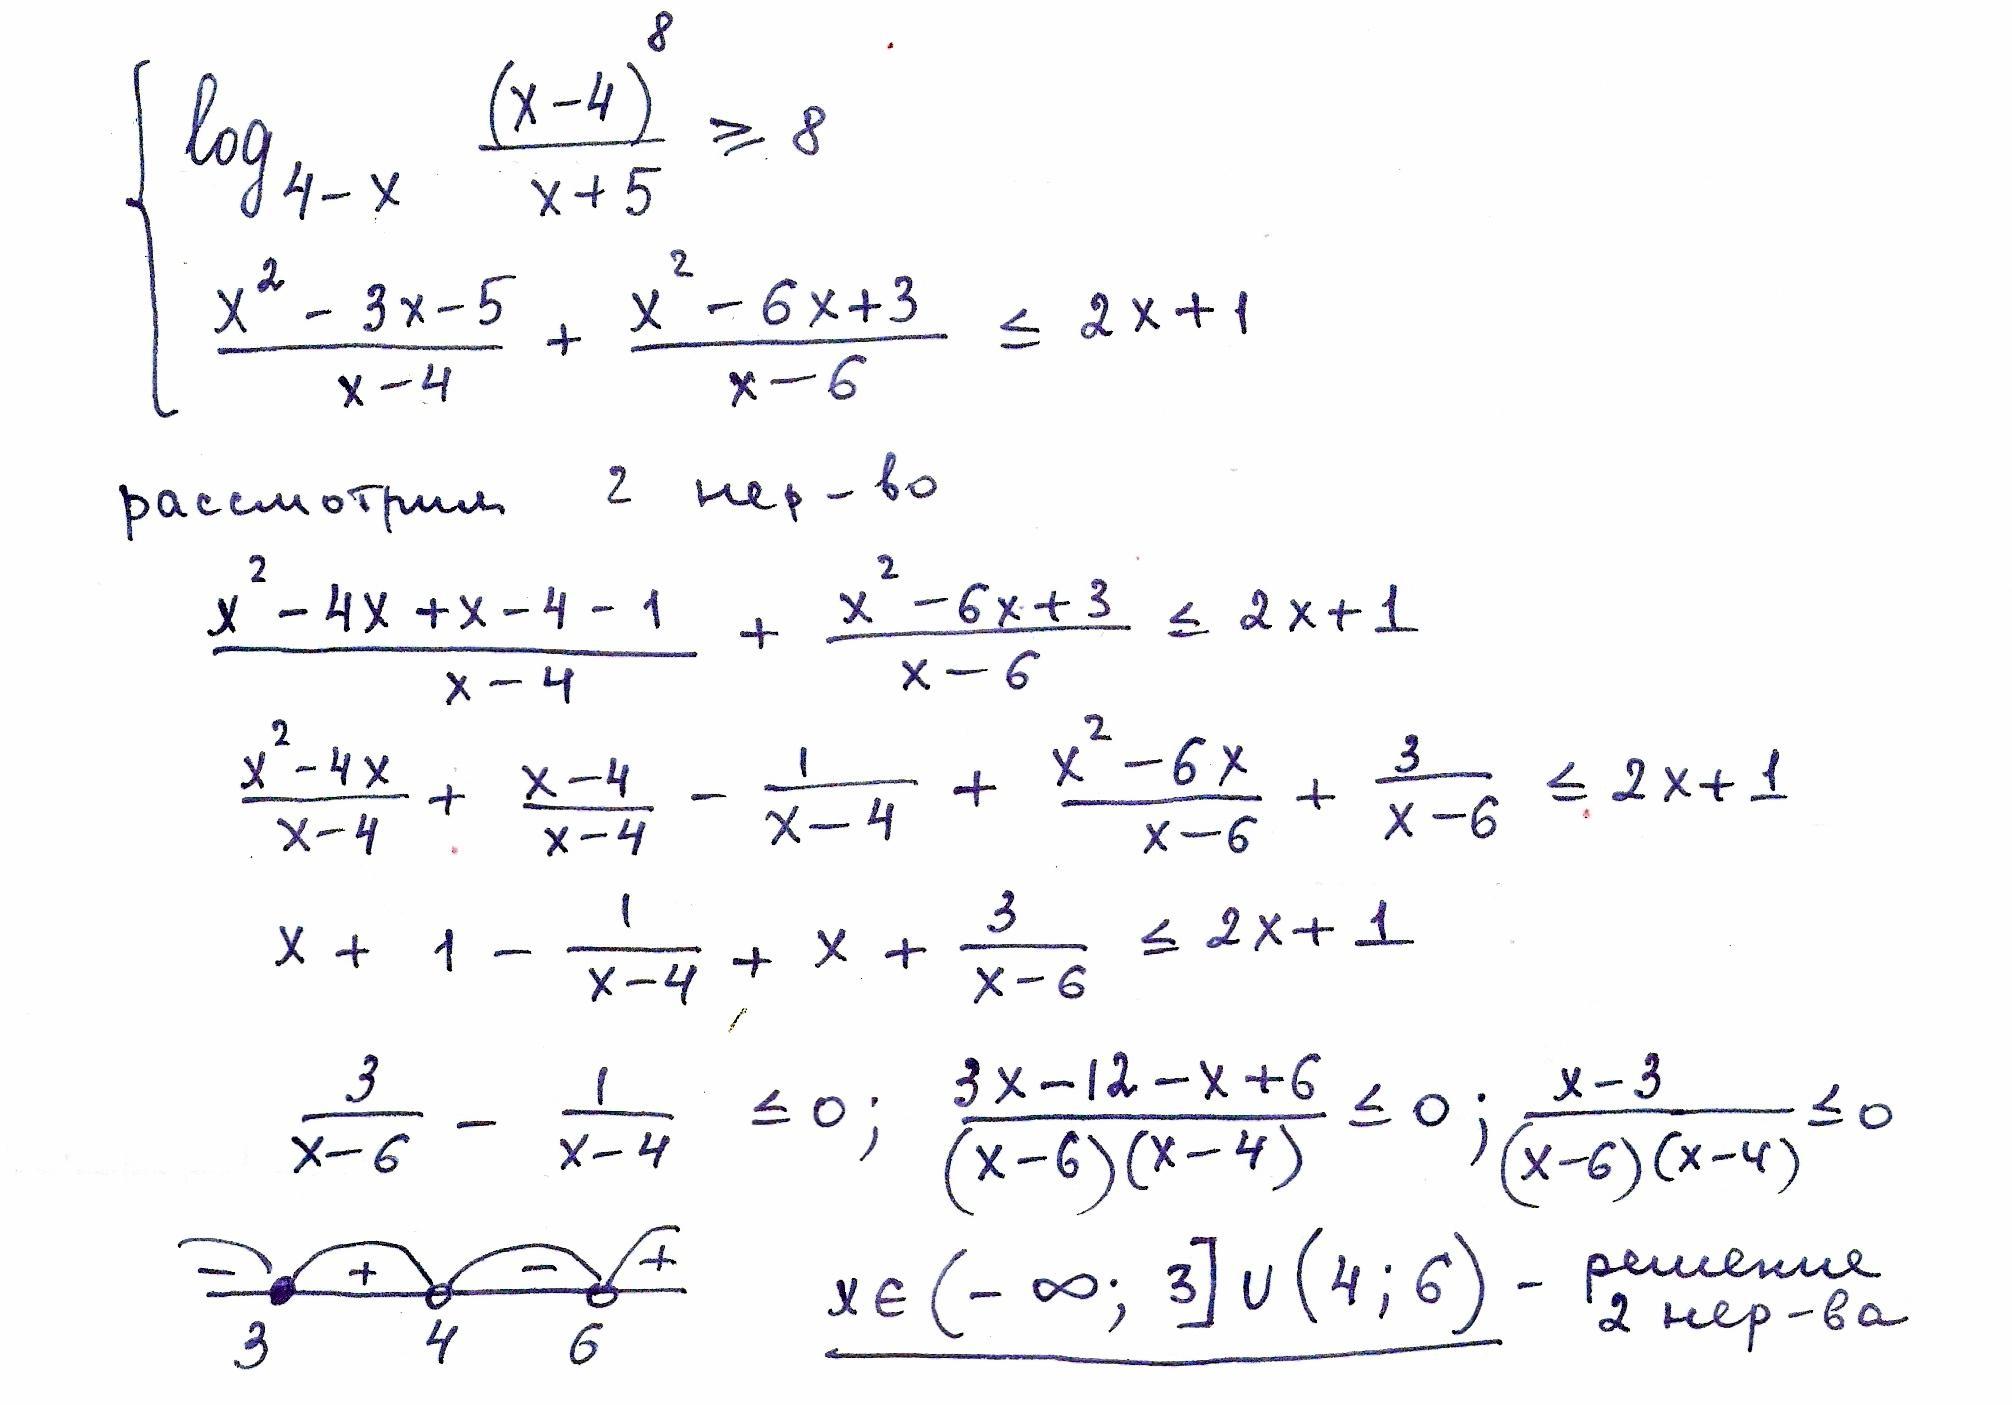 log_{4-x} \frac{(x-4)^8}{x+5} ≥ 8
\frac{x^2-3x-5}{x-4} + \frac{x^2-6x+3}{x-6} ≤ 2x+1
рассмотрим 2 нер-во
\frac{x^2-4x+x-4-1}{x-4} + \frac{x^2-6x+3}{x-6} ≤ 2x+1
\frac{x^2-4x}{x-4} + \frac{x-4}{x-4} - \frac{1}{x-4} + \frac{x^2-6x}{x-6} + \frac{3}{x-6} ≤ 2x+1
x + 1 - \frac{1}{x-4} + x + \frac{3}{x-6} ≤ 2x+1
\frac{3}{x-6} - \frac{1}{x-4} ≤ 0; \frac{3x-12-x+6}{(x-6)(x-4)} ≤ 0; \frac{x-3}{(x-6)(x-4)} ≤ 0
- + - +
3 4 6
x ∈ (-∞; 3] ∪ (4; 6) - решение
2 нер-ва